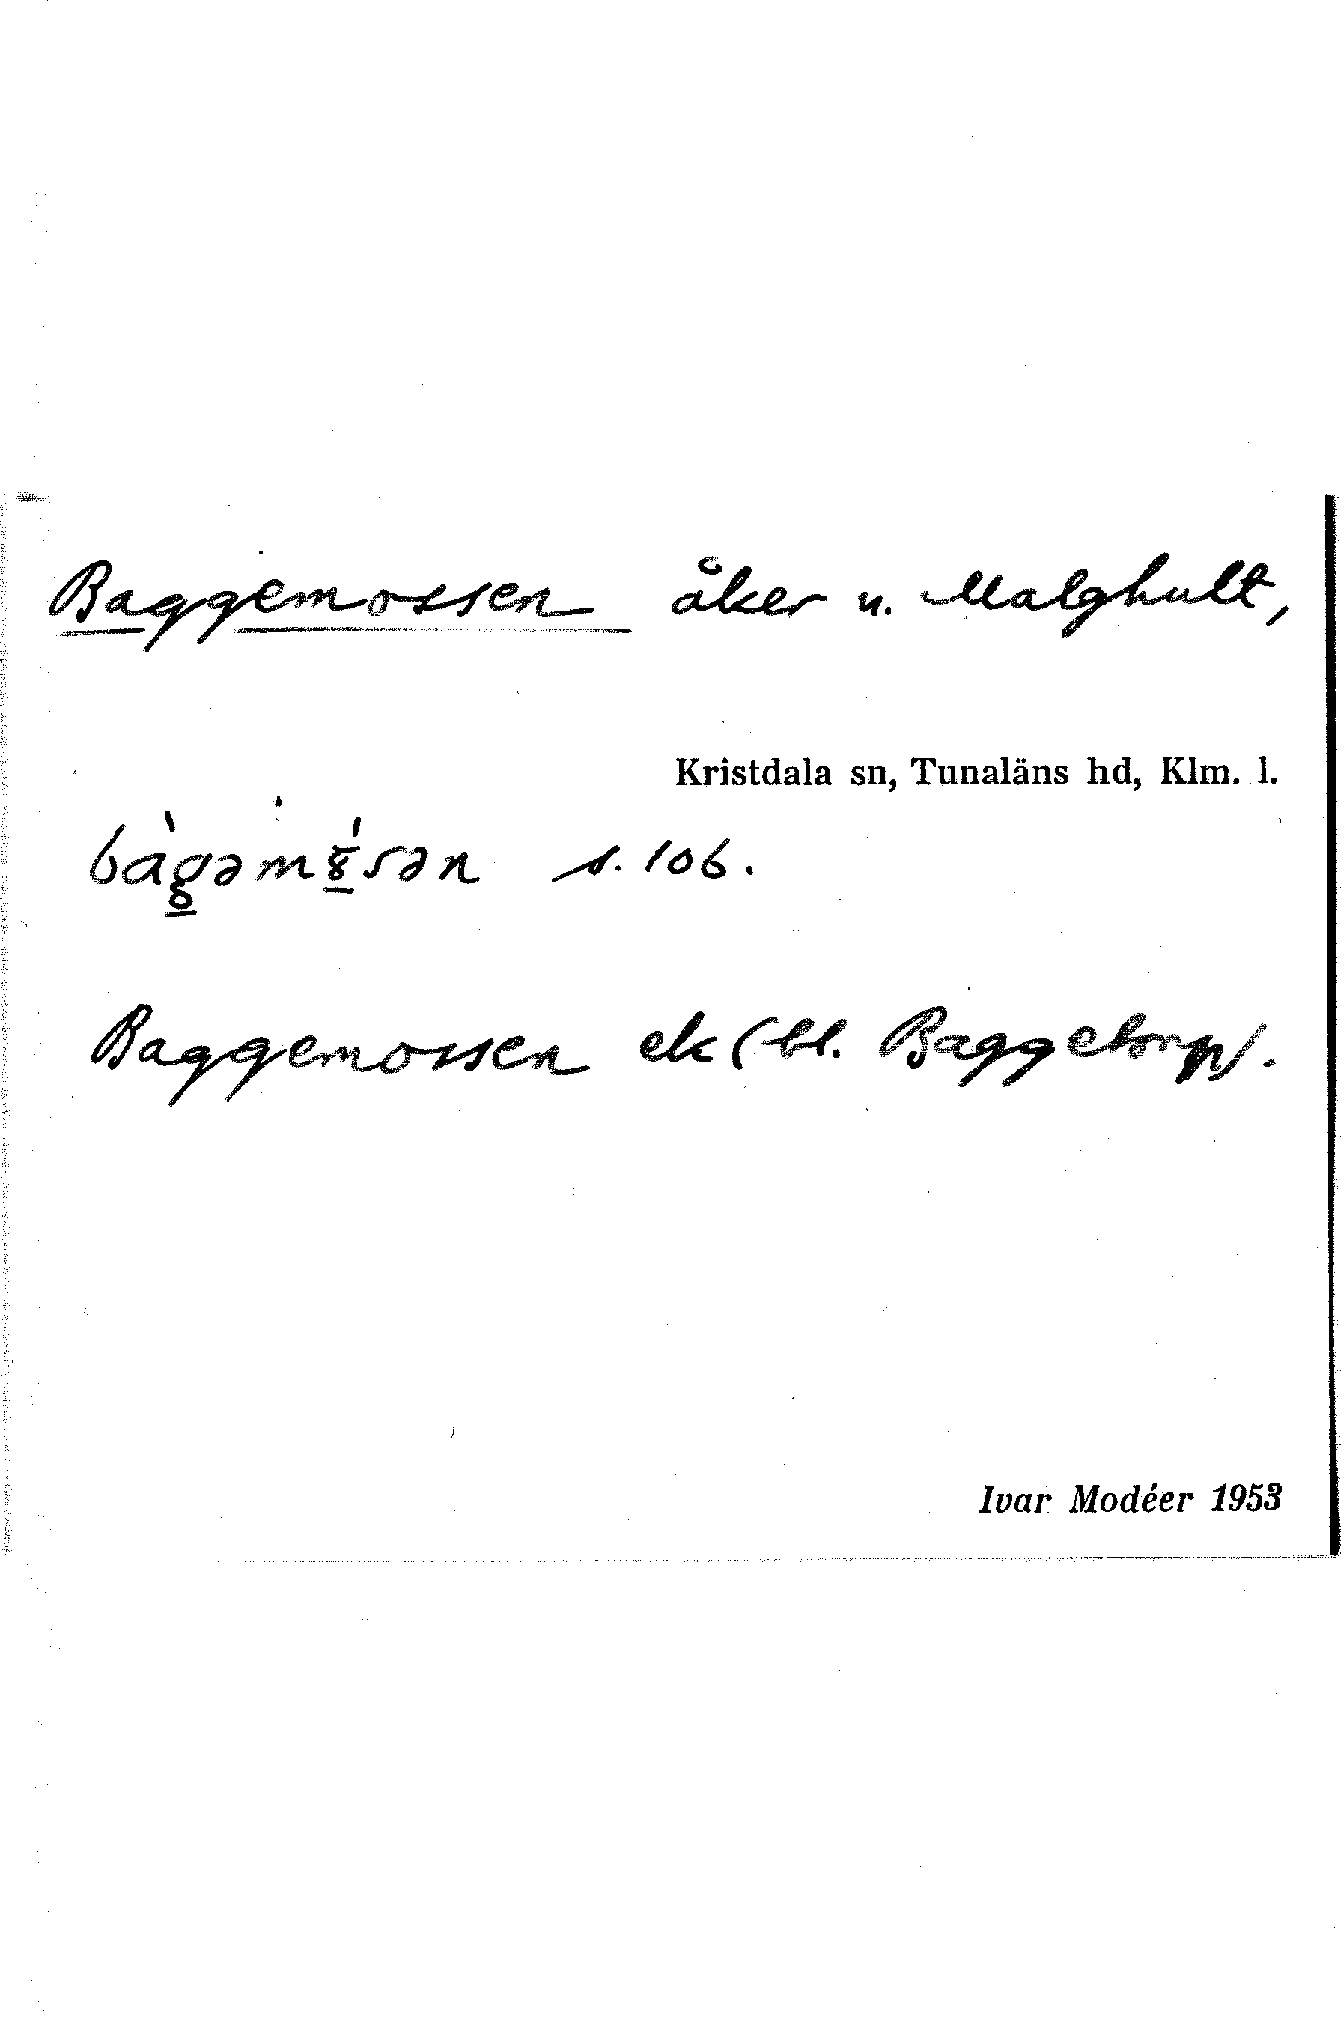 Baggemossen åker u. Malghult,
Kristdala sn, Tunaläns hd, Klm. l.
bàgəm8́sən s. 106.
Baggemossen ek (bl. Baggetorp).
Ivar Modéer 1953